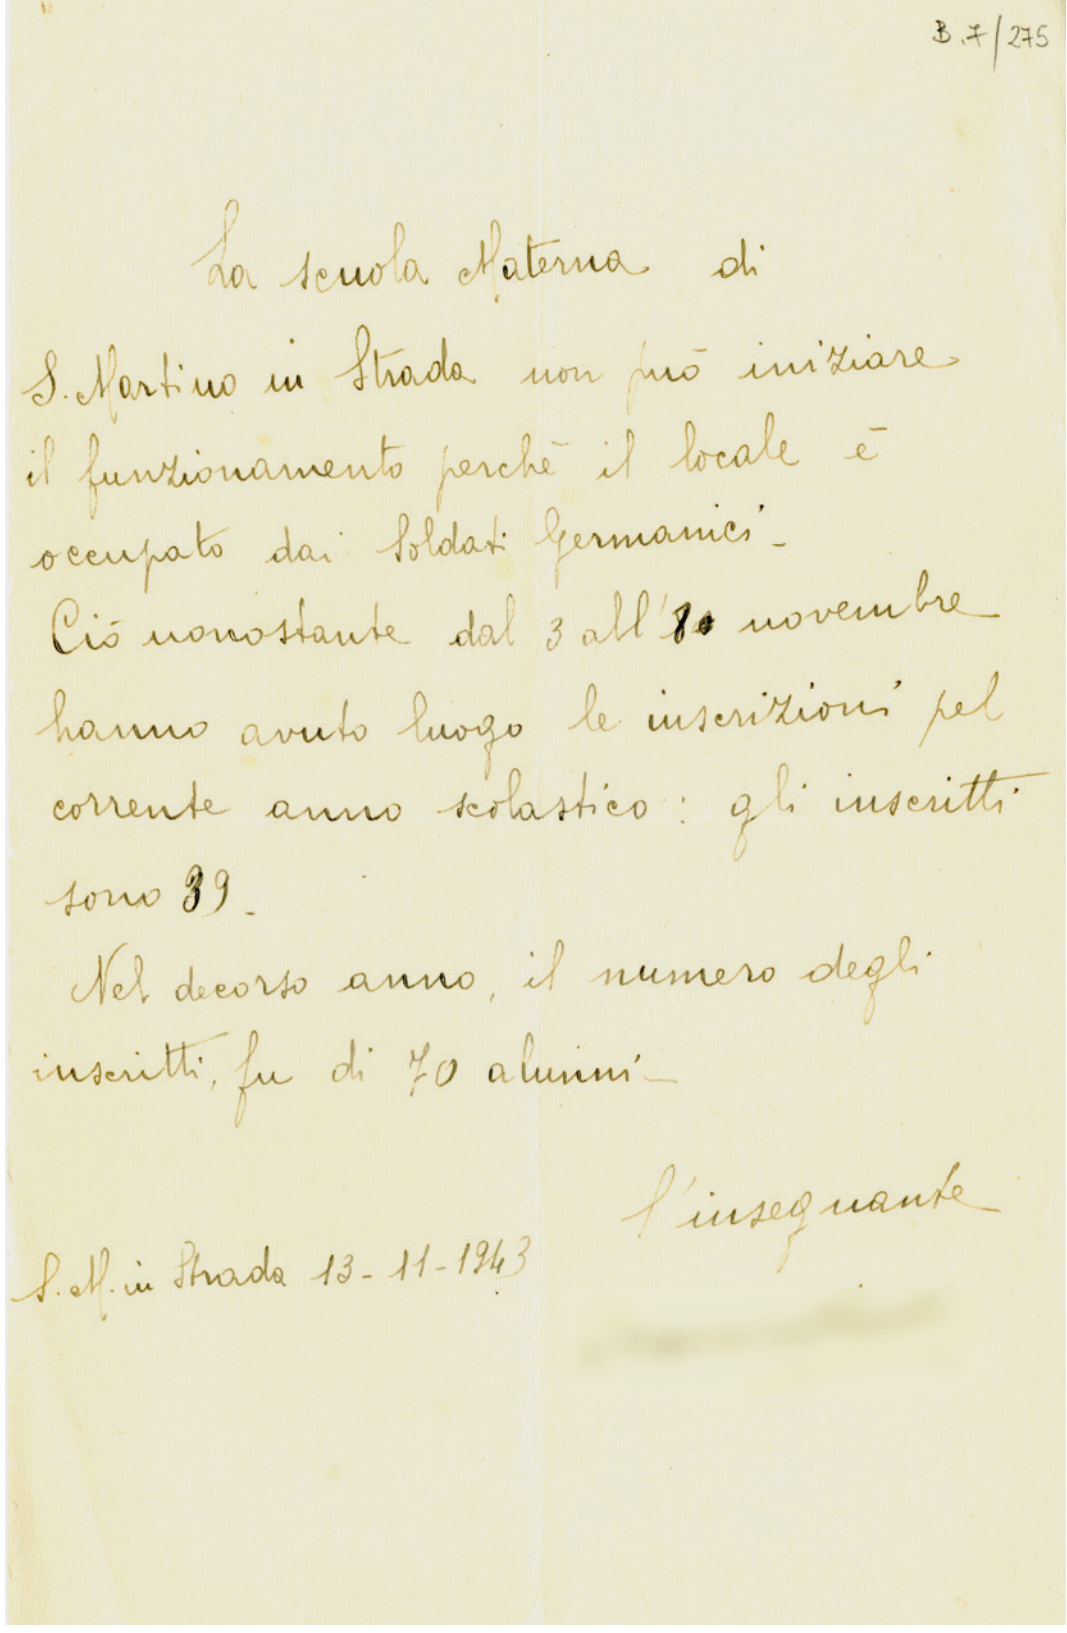 B.7/275
La scuola Materna di
S. Martino in Strada non può iniziare
il funzionamento perchè il locale è
occupato dai Soldati Germanici -
Ciò nonostante dal 3 all' novembre
hanno avuto luogo le inscrizioni pel
corrente anno scolastico: gli inscritti
sono 39 -
Nel decorso anno, il numero degli
inscritti, fu di 70 alunni -
l'insegnante
S. M. in Strada 13 - 11 - 1943